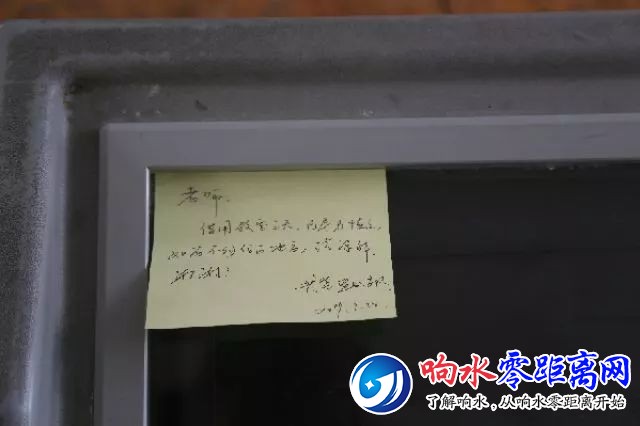 老师:
借用教室三天,
如有不到位的地方,请谅解.
谢谢!
2019.3.24.
响水零距离网
了解响水,从响水零距离开始